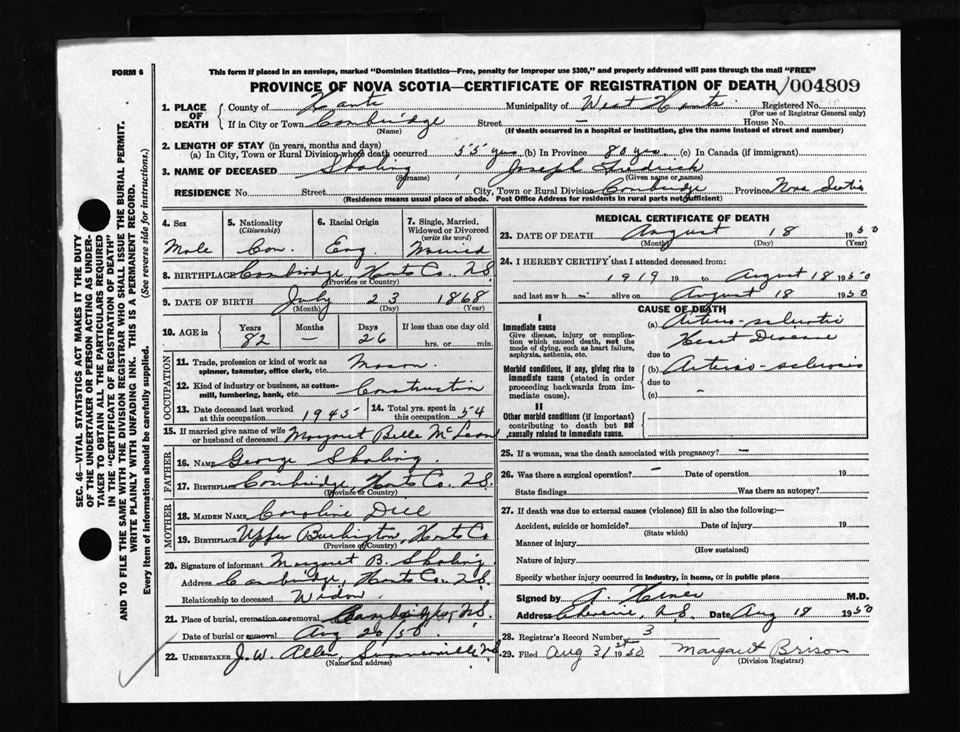 FORM 6
This form if placed in an envelope, marked "Dominion Statistics—Free, penalty for improper use $300," and properly addressed will pass through the mail "FREE"
PROVINCE OF NOVA SCOTIA—CERTIFICATE OF REGISTRATION OF DEATH 004809
1. PLACE OF DEATH County of Hants Municipality of West Hants Registered No.
(For use of Registrar General only)
If in City or Town Cambridge Street — House No.
(Name) (If death occurred in a hospital or institution, give the name instead of street and number)
2. LENGTH OF STAY (in years, months and days)
(a) In City, Town or Rural Division where death occurred 55 yrs (b) In Province 80 yrs. (c) In Canada (if immigrant)
3. NAME OF DECEASED Joseph
(Surname) (Given name or names)
RESIDENCE No. Street City, Town or Rural Division Cambridge Province Nova Scotia
(Residence means usual place of abode. Post Office Address for residents in rural parts not sufficient)
SEC. 46—VITAL STATISTICS ACT MAKES IT THE DUTY
OF THE UNDERTAKER OR PERSON ACTING AS UNDER-
TAKER TO OBTAIN ALL THE PARTICULARS REQUIRED
IN THE "CERTIFICATE OF REGISTRATION OF DEATH"
AND TO FILE THE SAME WITH THE DIVISION REGISTRAR WHO SHALL ISSUE THE BURIAL PERMIT.
WRITE PLAINLY WITH UNFADING INK. THIS IS A PERMANENT RECORD.
Every item of information should be carefully supplied. (See reverse side for instructions.)
4. Sex 5. Nationality (Citizenship) 6. Racial Origin 7. Single, Married, Widowed or Divorced (write the word)
Male Can. Eng Married
8. BIRTHPLACE Cambridge, Hants Co. N.S.
(Province or Country)
9. DATE OF BIRTH July 23 1868
(Month) (Day) (Year)
10. AGE in Years Months Days If less than one day old
82 — 26 hrs. or min.
OCCUPATION
11. Trade, profession or kind of work as spinner, teamster, office clerk, etc. Mason
12. Kind of industry or business, as cotton-mill, lumbering, bank, etc. Construction
13. Date deceased last worked at this occupation 1945 14. Total yrs. spent in this occupation 54
15. If married give name of wife or husband of deceased Margaret Belle McLean
FATHER
16. NAME George
17. BIRTHPLACE Cambridge, Hants Co. N.S.
(Province or Country)
MOTHER
18. MAIDEN NAME Caroline
19. BIRTHPLACE Upper Burlington, Hants Co
(Province or Country)
20. Signature of informant Margaret B.
Address Cambridge, Hants Co. N.S.
Relationship to deceased Widow
21. Place of burial, cremation or removal Cambridge, N.S.
Date of burial or removal Aug 20/50
22. UNDERTAKER J. W. Allen, Summerville N.S.
(Name and address)
MEDICAL CERTIFICATE OF DEATH
23. DATE OF DEATH August 18 1950
(Month) (Day) (Year)
24. I HEREBY CERTIFY that I attended deceased from:
1919 19 to August 18 1950
and last saw h — alive on August 18 1950
CAUSE OF DEATH
I
Immediate cause
Give disease, injury or complication which caused death, not the mode of dying, such as heart failure, asphyxia, asthenia, etc.
(a) Arterio-sclerotic
Heart Disease
due to
Morbid conditions, if any, giving rise to immediate cause (stated in order proceeding backwards from immediate cause).
(b) Arterio-sclerosis
due to —
(c)
II
Other morbid conditions (if important) contributing to death but not causally related to immediate cause.
25. If a woman, was the death associated with pregnancy? —
26. Was there a surgical operation? — Date of operation 19
State findings Was there an autopsy?
27. If death was due to external causes (violence) fill in also the following:—
Accident, suicide or homicide? Date of injury 19
(State which)
Manner of injury
(How sustained)
Nature of injury
Specify whether injury occurred in industry, in home, or in public place
Signed by M.D.
Address N.S. Date Aug 18 1950
28. Registrar's Record Number 3
29. Filed Aug 31st 1950 Margaret Brison
(Division Registrar)